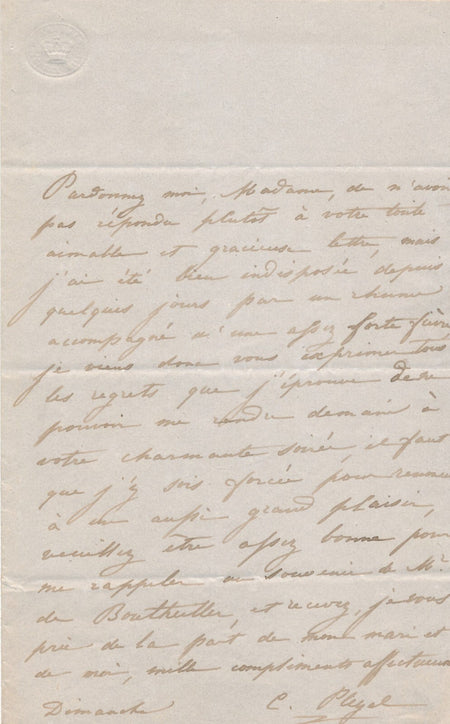 Pardonnez moi, Madame, de n'avoir
pas répondu plutôt à votre toute
aimable et gracieuse lettre, mais
j'ai été bien indisposée, depuis
quelques jours par un rhume
accompagné d'une assez forte fièvre,
je viens donc vous exprimer tous
les regrets que j'éprouve de ne
pouvoir me rendre demain à
votre charmante soirée il faut
que j'y sois forcée pour renoncer
à un aussi grand plaisir,
veuillez être assez bonne pour
me rappeler au souvenir de Mr.
de Bouthillier, et recevez, je vous
prie de la part de mon mari et
de moi, mille compliments affectueux
Dimanche C. Pleyel